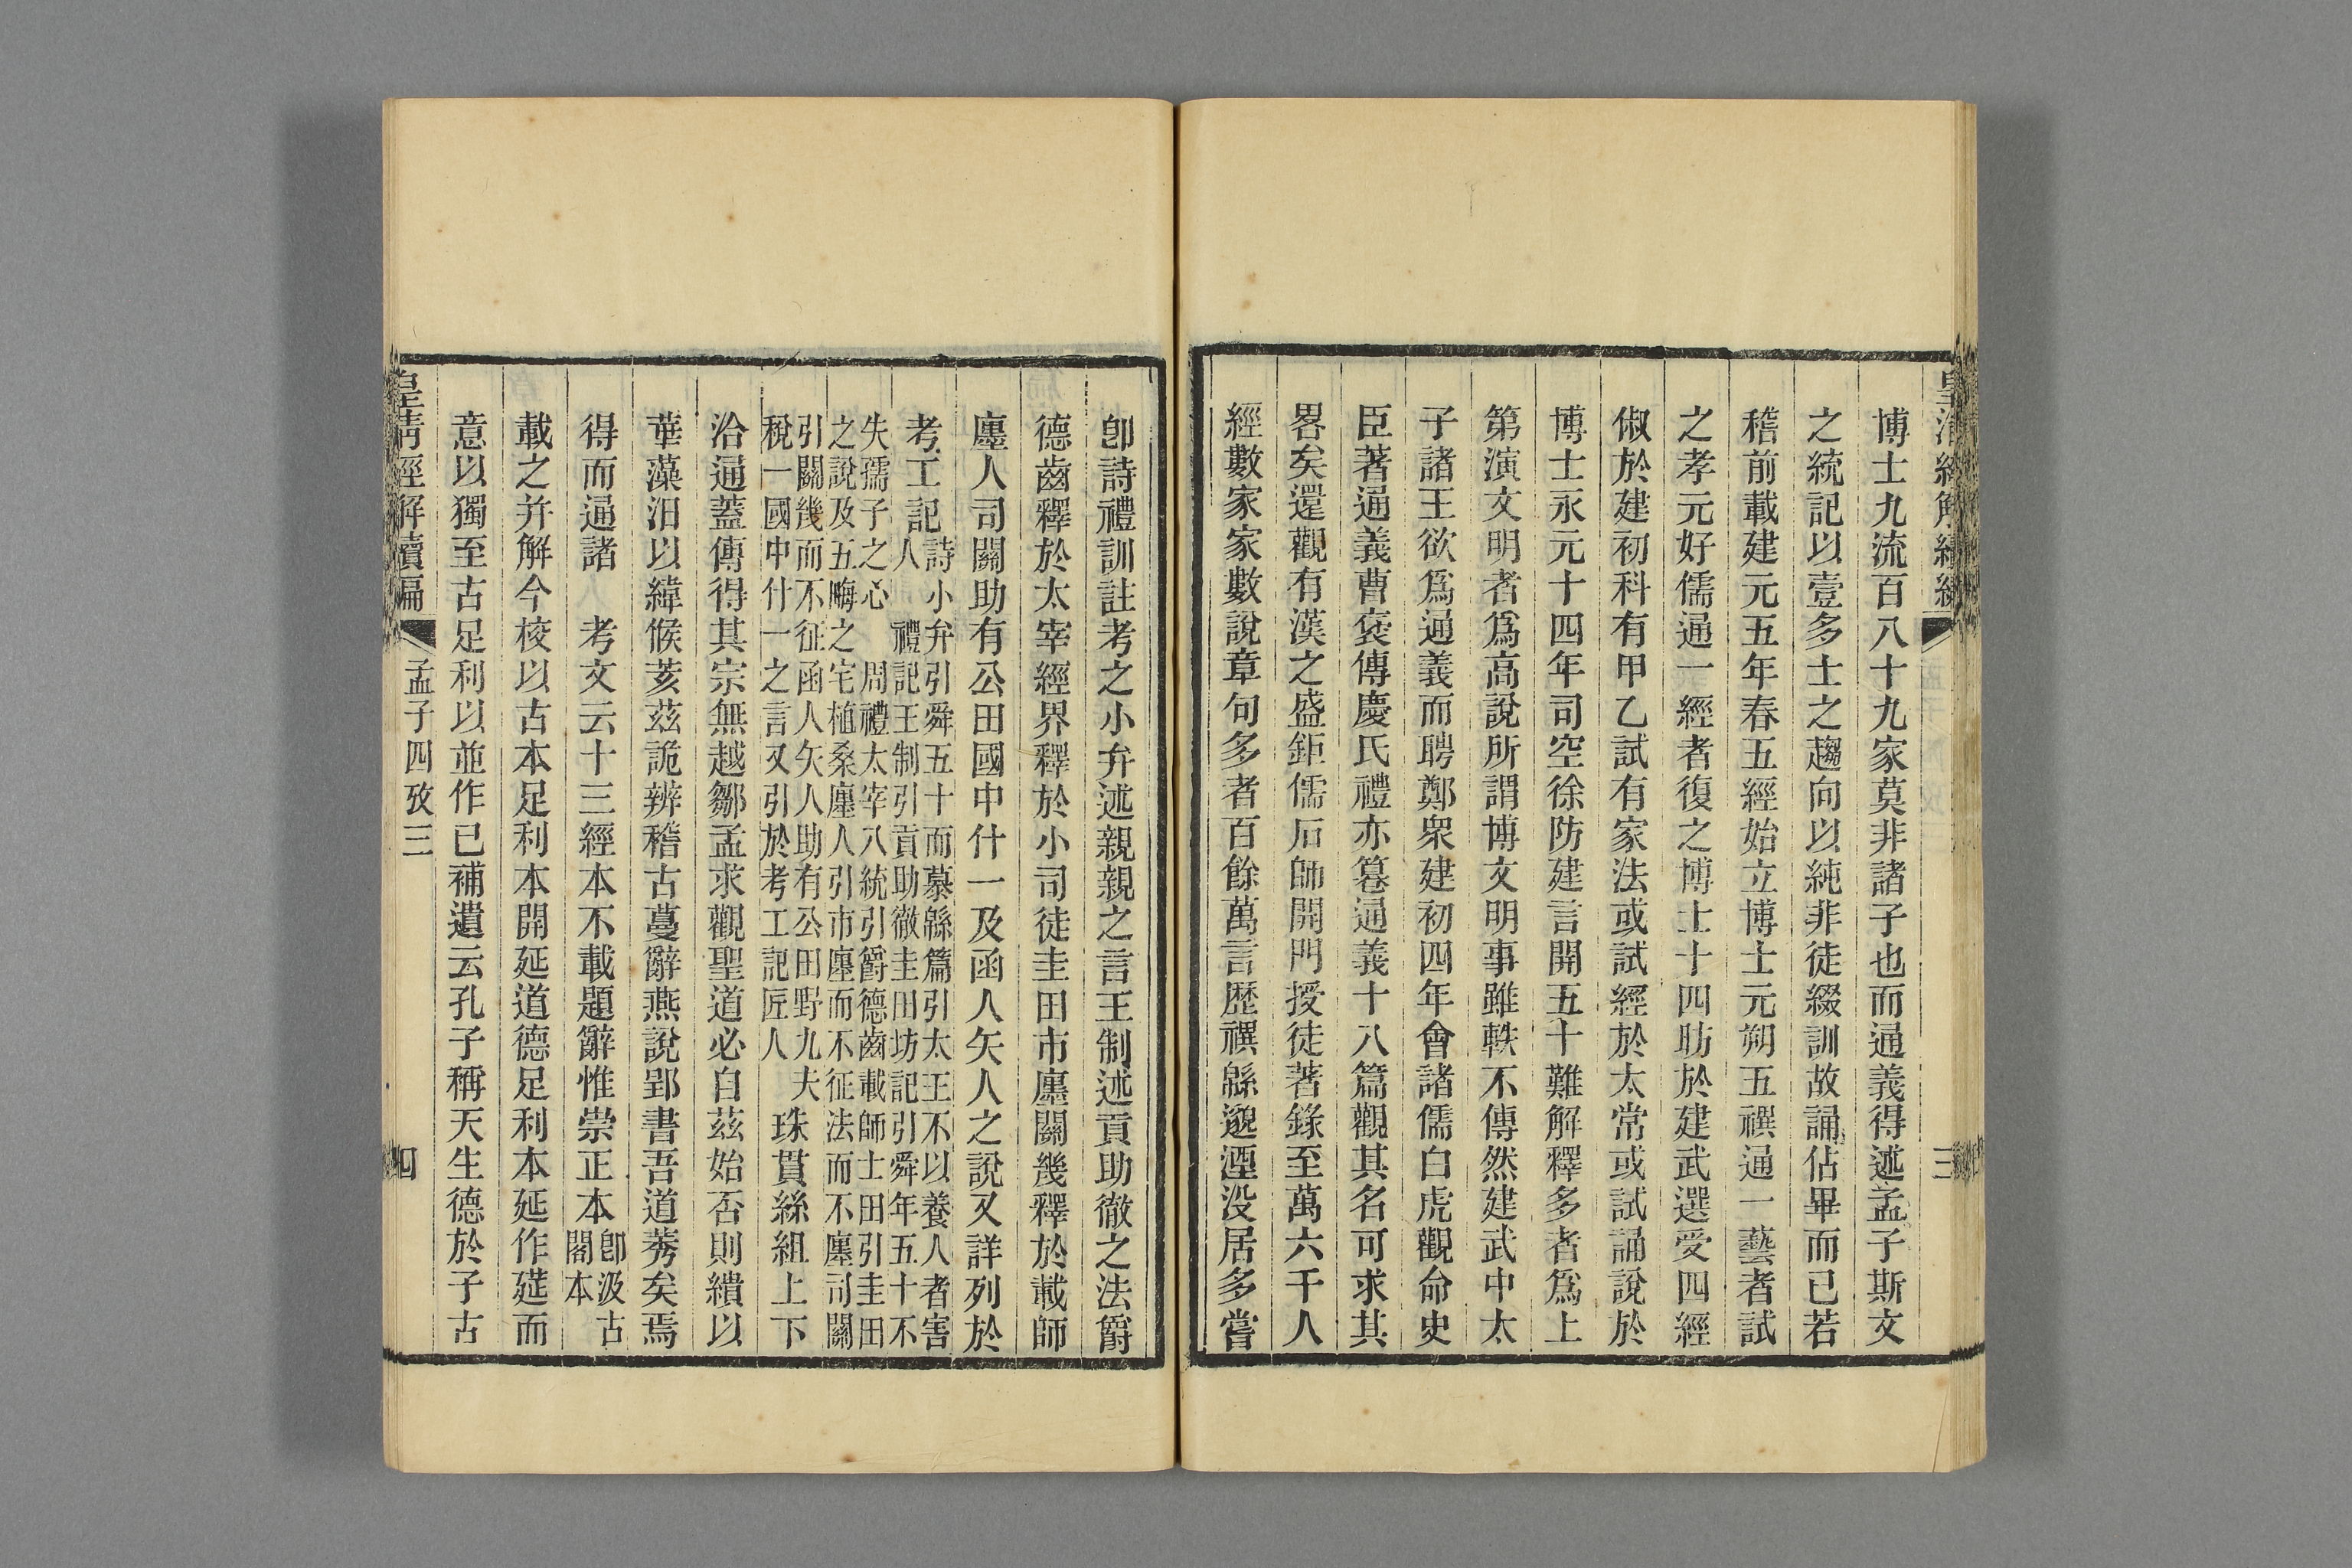 博士九流百八十九家莫非諸子也而通義得述孟子斯文
之統記以壹多士之趨向以純非徒綴訓故誦佔畢而已若
稽前載建元五年春五經始立博士元朔五禩通一藝者試
之孝元好儒通一經者復之博士十四肪於建武選受四經
俶於建初科有甲乙試有家法或試經於太常或試誦說於
博士永元十四年司空徐防建言開五十難解釋多者爲上
第演文明者爲高說所謂博文明事雖軼不傳然建武中太
子諸王欲爲通義而聘鄭衆建初四年會諸儒白虎觀命史
臣著通義曹褒傳慶氏禮亦篹通義十八篇觀其名可求其
畧矣還觀有漢之盛鉅儒石師開門授徒著錄至萬六千人
經數家家數說章句多者百餘萬言歷禩緜邈湮没居多嘗
三
卽詩禮訓註考之小弁述親親之言王制述貢助徹之法爵
德齒釋於太宰經界釋於小司徒圭田市廛關幾釋於載師
廛人司關助有公田國中什一及函人矢人之說又詳列於
考工記詩小弁引舜五十而慕緜篇引太王不以養人者害
人 禮記王制引貢助徹圭田坊記引舜年五十不
失孺子之心 周禮太宰八統引爵德齒載師士田引圭田
之說及五畮之宅植桑廛人引市廛而不征法而不廛司關
引關幾而不征函人矢人助有公田野九夫
稅一國中什一之言又引於考工記匠人
珠貫絲組上下
洽通蓋傳得其宗無越鄒孟求觀聖道必自茲始否則繢以
華藻汨以緯候荄茲詭辨稽古蔓辭燕說郢書吾道莠矣焉
得而通諸 考文云十三經本不載題辭惟崇正本卽汲古
閣本
載之幷解今校以古本足利本開延道德足利本延作莚而
意以獨至古足利以並作已補遺云孔子稱天生德於子古
皇清經解續編
孟子四攷三
四